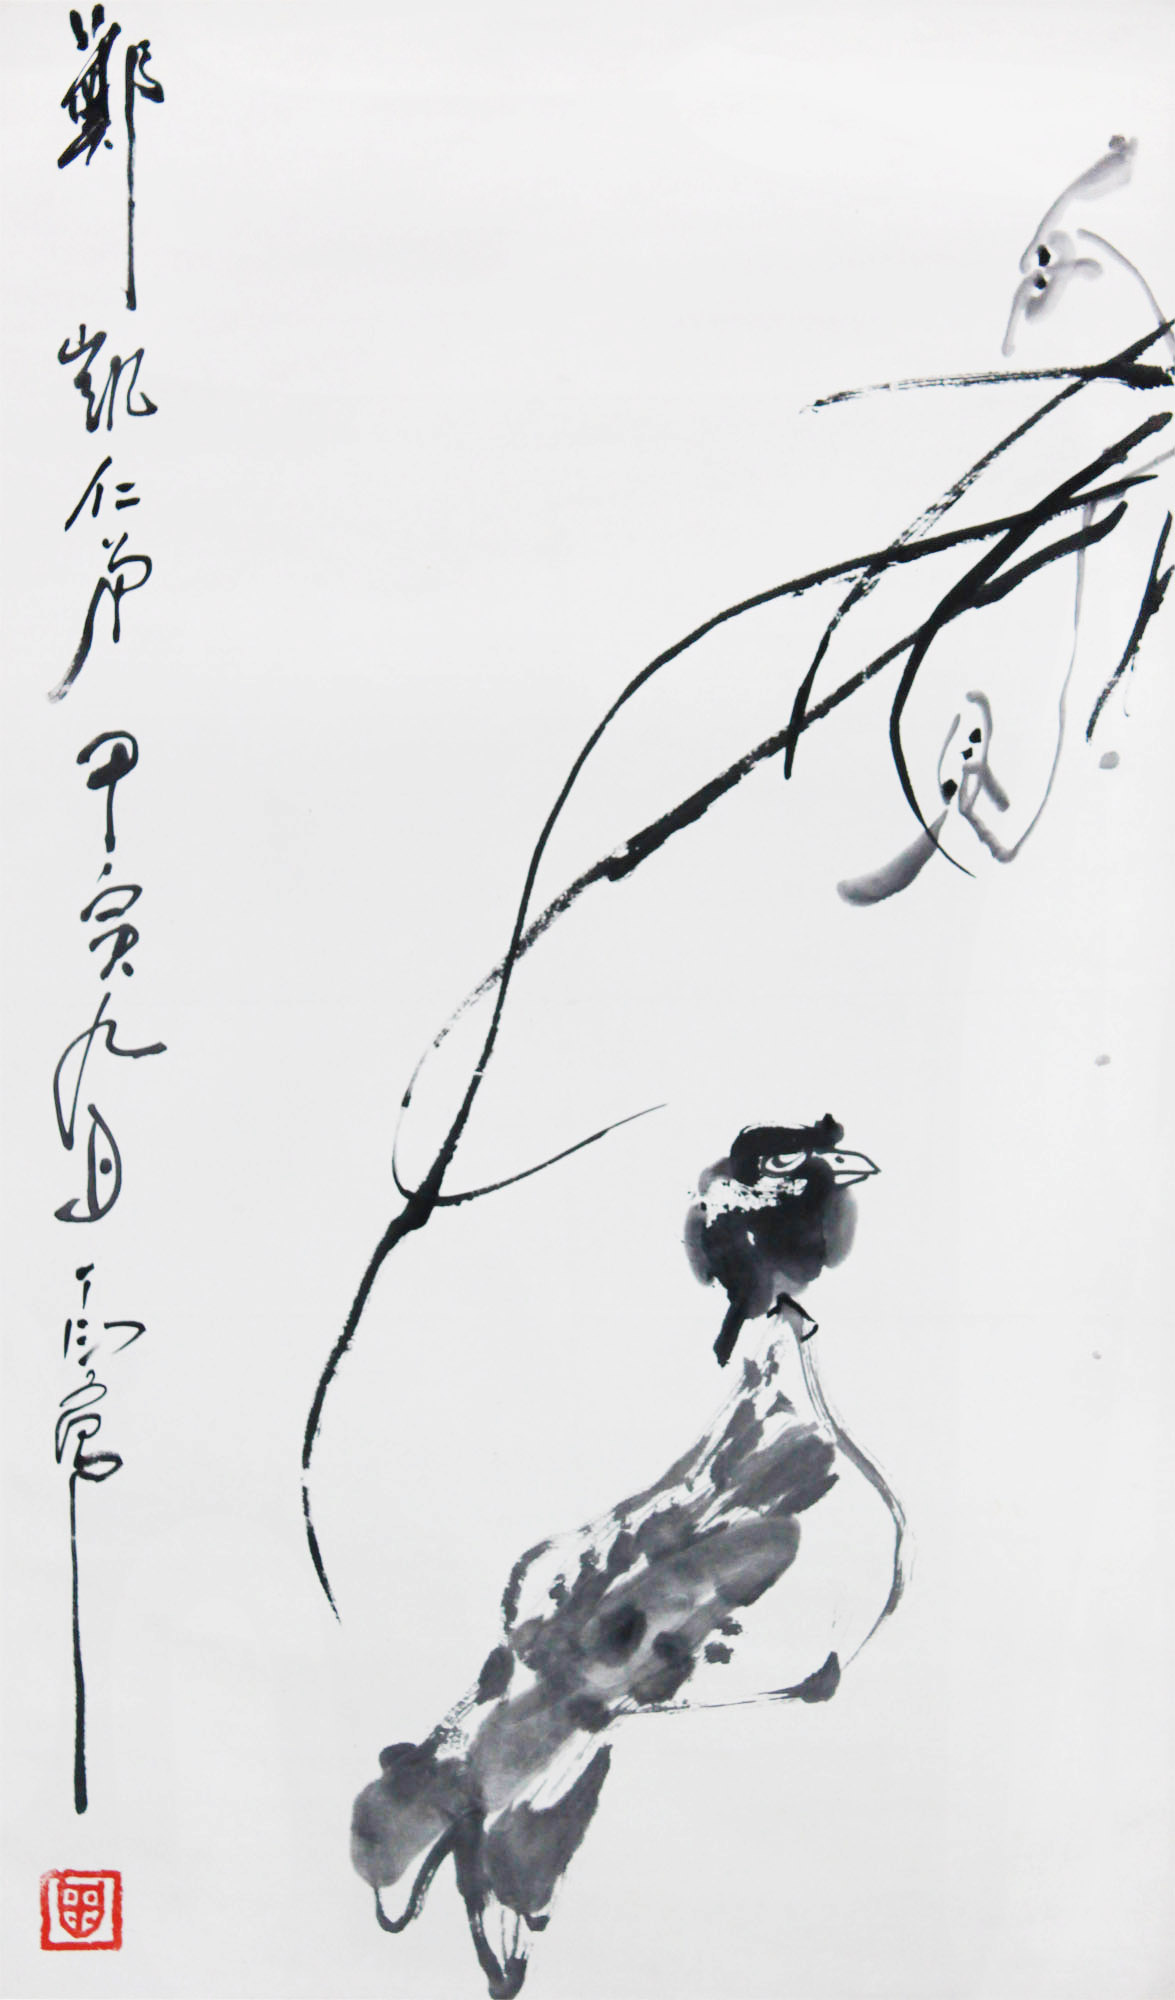 鄭凱仁弟 甲寅九月 丁衍庸